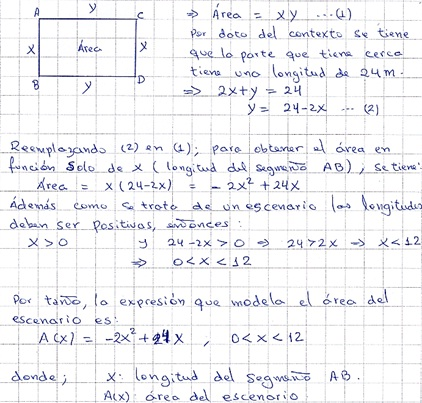 A y C
⇒ Área = xy ...(1)
x Área x
Por dato del contexto se tiene
que la parte que tiene cerca
B y D
tiene una longitud de 24m.
⇒ 2x+y = 24
y = 24-2x ... (2)
Reemplazando (2) en (1); para obtener el área en
función solo de x (longitud del segmento AB), se tiene:
Área = x(24-2x) = -2x² + 24x
Además como se trata de un escenario las longitudes
deben ser positivas, entonces:
x>0 y 24-2x>0 ⇒ 24>2x ⇒ x<12
⇒ 0<x<12
Por tanto, la expresión que modela el área del
escenario es:
A(x) = -2x²+24x , 0<x<12
donde; x: longitud del segmento AB.
A(x): área del escenario